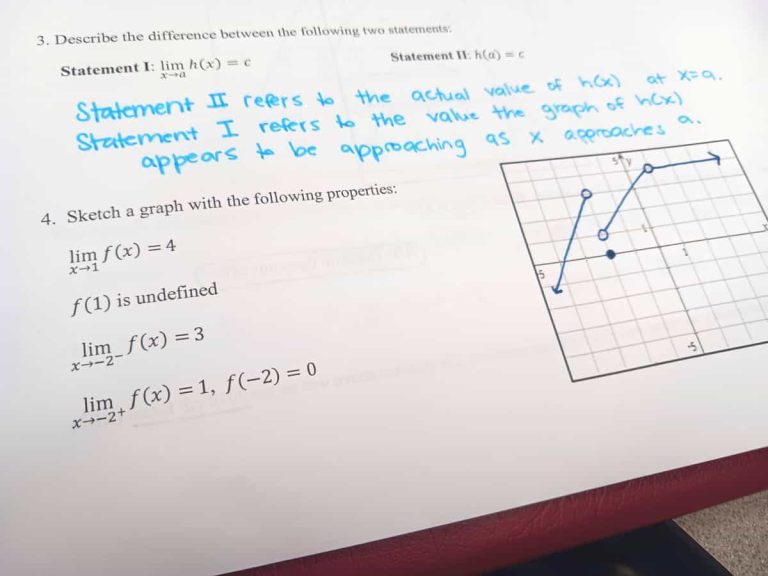 3. Describe the difference between the following two statements:
Statement I: lim x→a h(x) = c Statement II: h(a) = c
Statement II refers to the actual value of h(x) at x=a.
Statement I refers to the value the graph of h(x)
appears to be approaching as x approaches a.
4. Sketch a graph with the following properties:
lim x→1 f(x) = 4
f(1) is undefined
lim x→−2⁻ f(x) = 3
lim x→−2⁺ f(x) = 1, f(−2) = 0
5 y
1
-5 1 x
-5